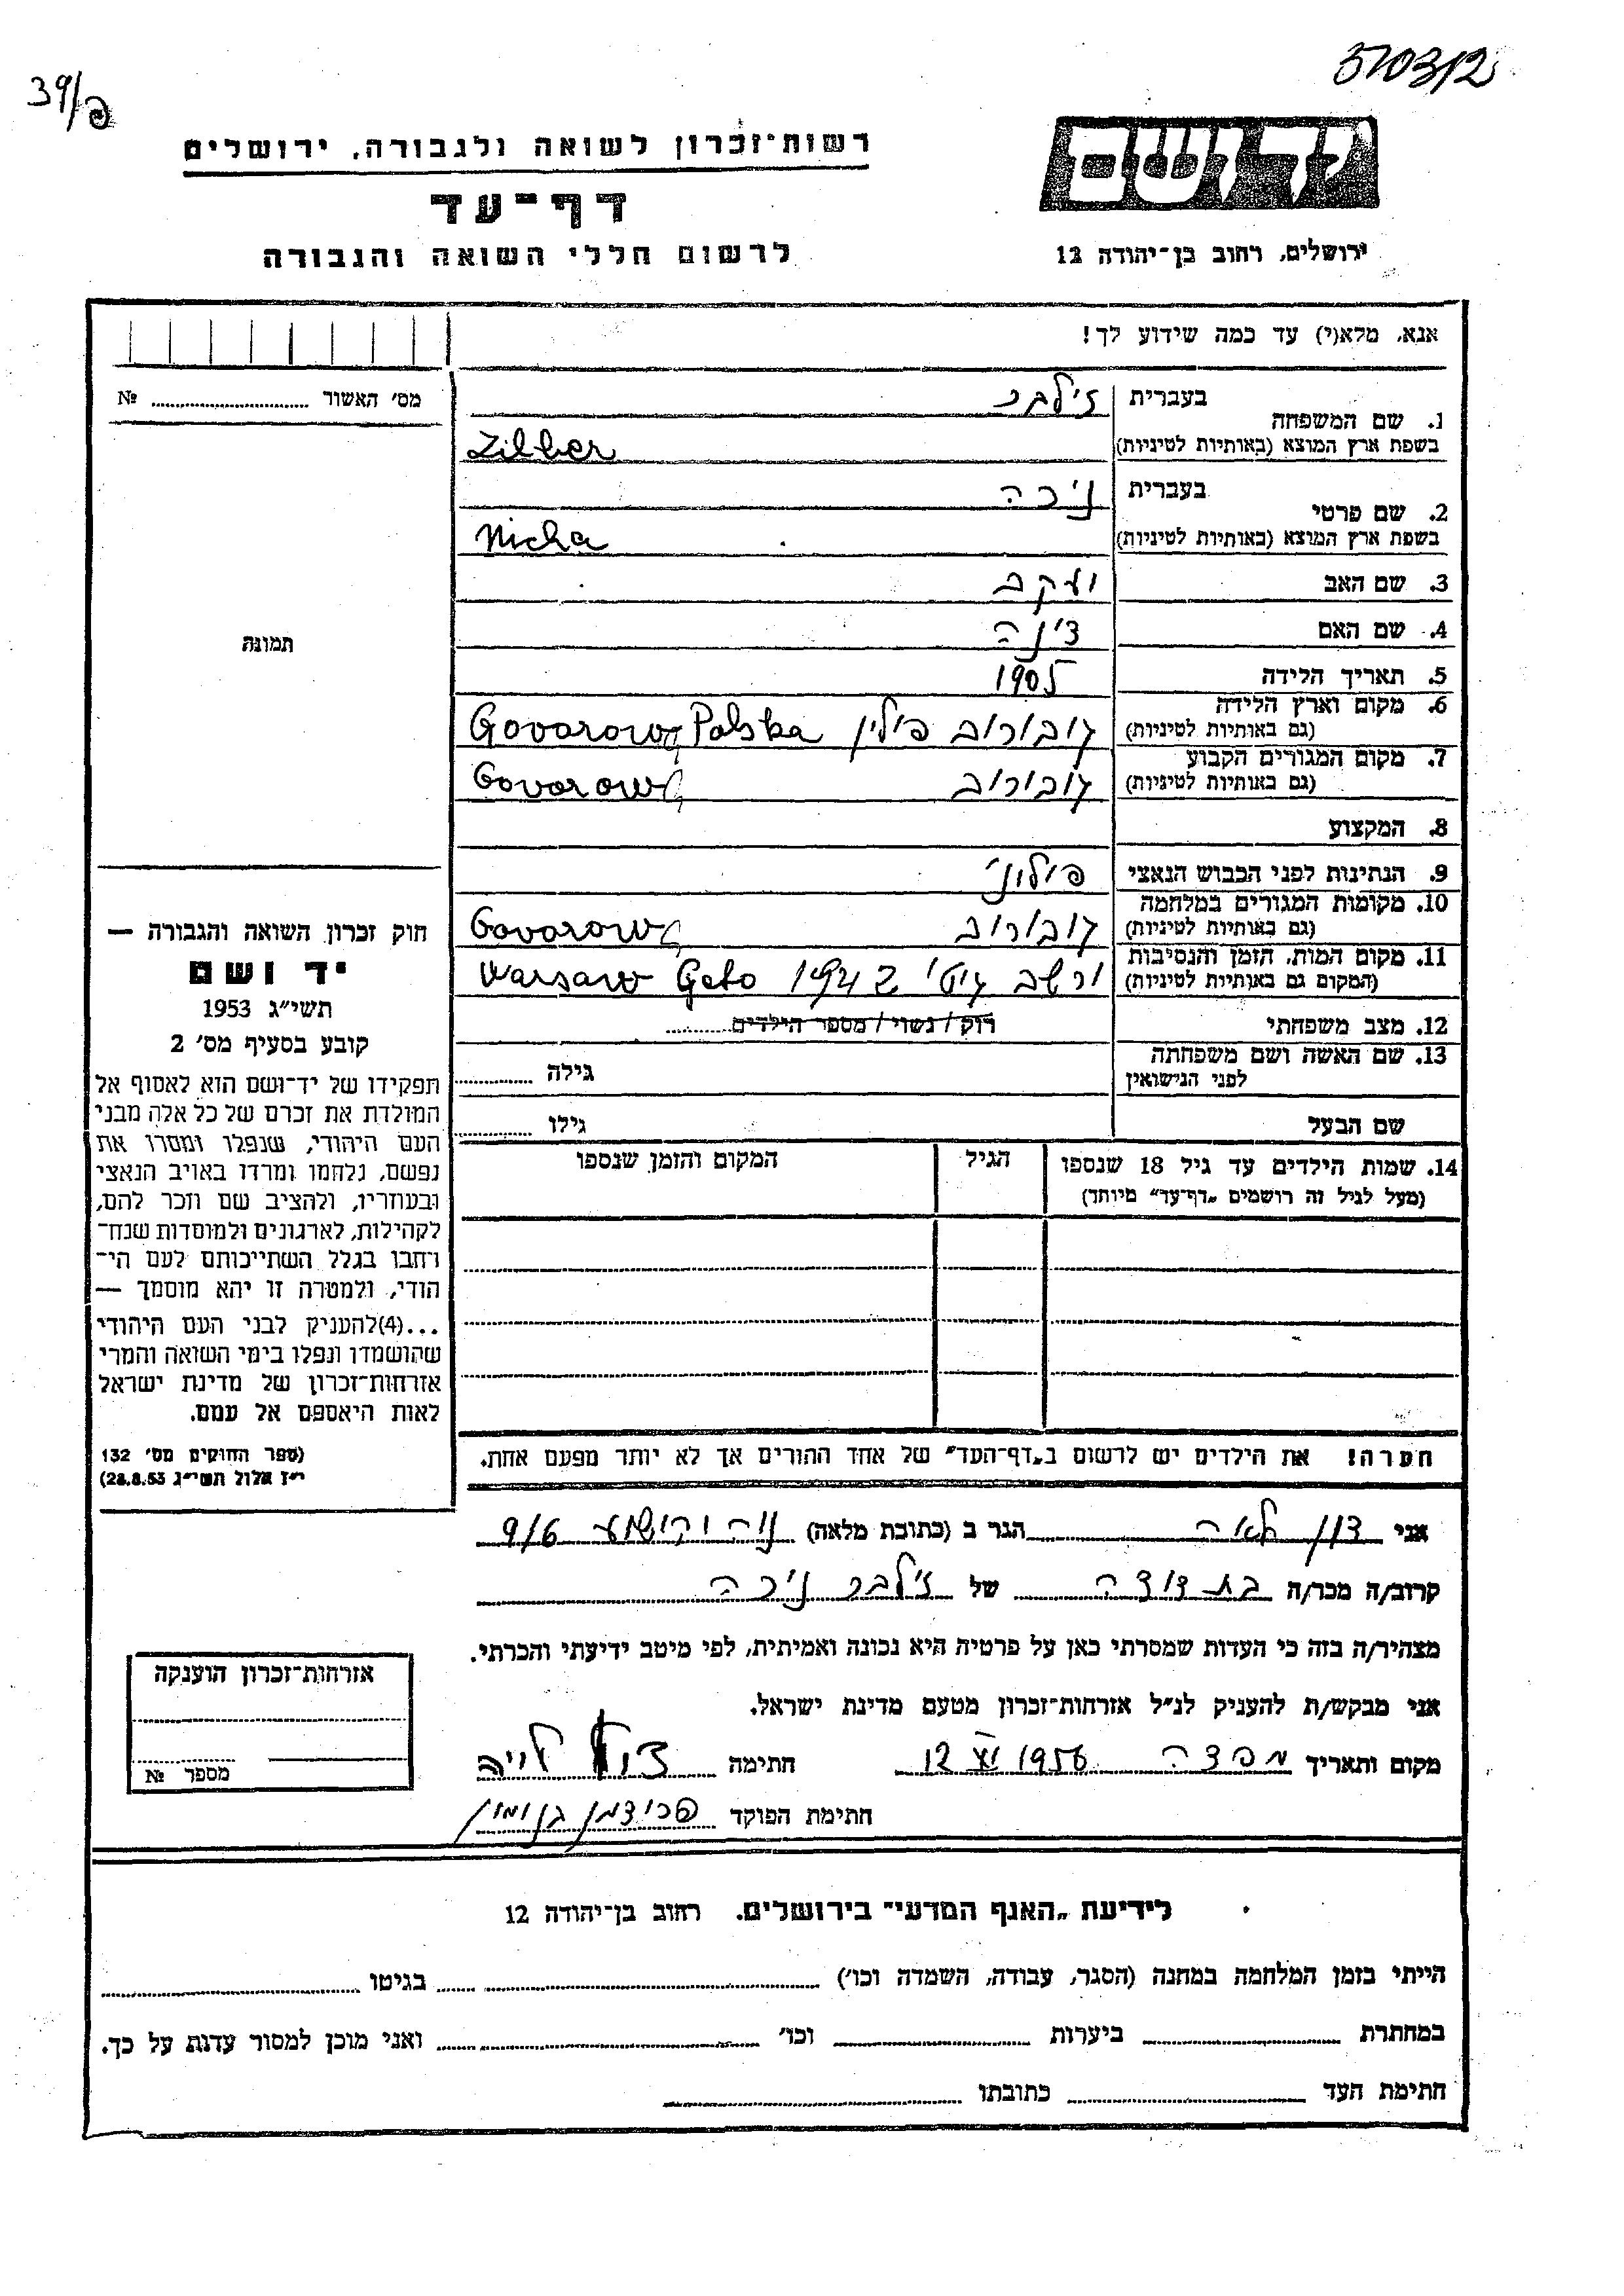 570312
39/פ
יד ושם
רשות־זכרון לשואה ולגבורה, ירושלים
דף־עד
לרשום חללי השואה והגבורה
ירושלים, רחוב בן־יהודה 12
אנא, מלא(י) עד כמה שידוע לך!
מס' האשור № 
1. שם המשפחה בעברית זילבר
בשפת ארץ המוצא (באותיות לטיניות) Zilber
2. שם פרטי בעברית ניכה
בשפת ארץ המוצא (באותיות לטיניות) Nicha
3. שם האב יעקב
4. שם האם
תמונה
5. תאריך הלידה 1905
6. מקום וארץ הלידה (גם באותיות לטיניות) גובורוב פולין Govorowo Polska
7. מקום המגורים הקבוע (גם באותיות לטיניות) גובורוב Govorowo
8. המקצוע
9. הנתינות לפני הכבוש הנאצי פולוני
10. מקומות המגורים במלחמה (גם באותיות לטיניות) גובורוב Govorowo
11. מקום המות, הזמן והנסיבות (המקום גם באותיות לטיניות) ורשב גיטו 1942 Warsaw Geto
12. מצב משפחתי רוק / נשוי / מספר הילדים
13. שם האשה ושם משפחתה לפני הנישואין גילה
שם הבעל גילו
14. שמות הילדים עד גיל 18 שנספו הגיל המקום והזמן שנספו
(מעל לגיל זה רושמים „דף־עד" מיוחד)
חוק זכרון השואה והגבורה —
יד ושם
תשי"ג 1953
קובע בסעיף מס' 2
תפקידו של יד־ושם הוא לאסוף אל
המולדת את זכרם של כל אלה מבני
העם היהודי, שנפלו ומסרו את
נפשם, נלחמו ומרדו באויב הנאצי
ובעוזריו, ולהציב שם וזכר להם,
לקהילות, לארגונים ולמוסדות שנח־
רחבו בגלל השתייכותם לעם הי־
הודי, ולמטרה זו יהא מוסמך —
...(4)להעניק לבני העם היהודי
שהושמדו ונפלו בימי השואה והמרי
אזרחות־זכרון של מדינת ישראל
לאות היאספם אל עמם.
(ספר החוקים מס' 132
י"ז אלול תשי"ג 28.8.53)
הערה! את הילדים יש לרשום ב„דף־העד" של אחד ההורים אך לא יותר מפעם אחת.
אני לאה הגר ב (כתובת מלאה) 9/6
קרוב/ה מכר/ה בת דודה של זילבר ניכה
מצהיר/ה בזה כי העדות שמסרתי כאן על פרטיה היא נכונה ואמיתית, לפי מיטב ידיעתי והכרתי.
אני מבקש/ת להעניק לנ"ל אזרחות־זכרון מטעם מדינת ישראל.
מקום ותאריך 12 XI 1956 חתימה
חתימת הפוקד
אזרחות־זכרון הוענקה
מספר №
לידיעת „האגף המדעי" בירושלים. רחוב בן־יהודה 12
הייתי בזמן המלחמה במחנה (הסגר, עבודה, השמדה וכו') בגיטו
במחתרת ביערות וכו' ואני מוכן למסור עדות על כך.
חתימת העד כתובתו